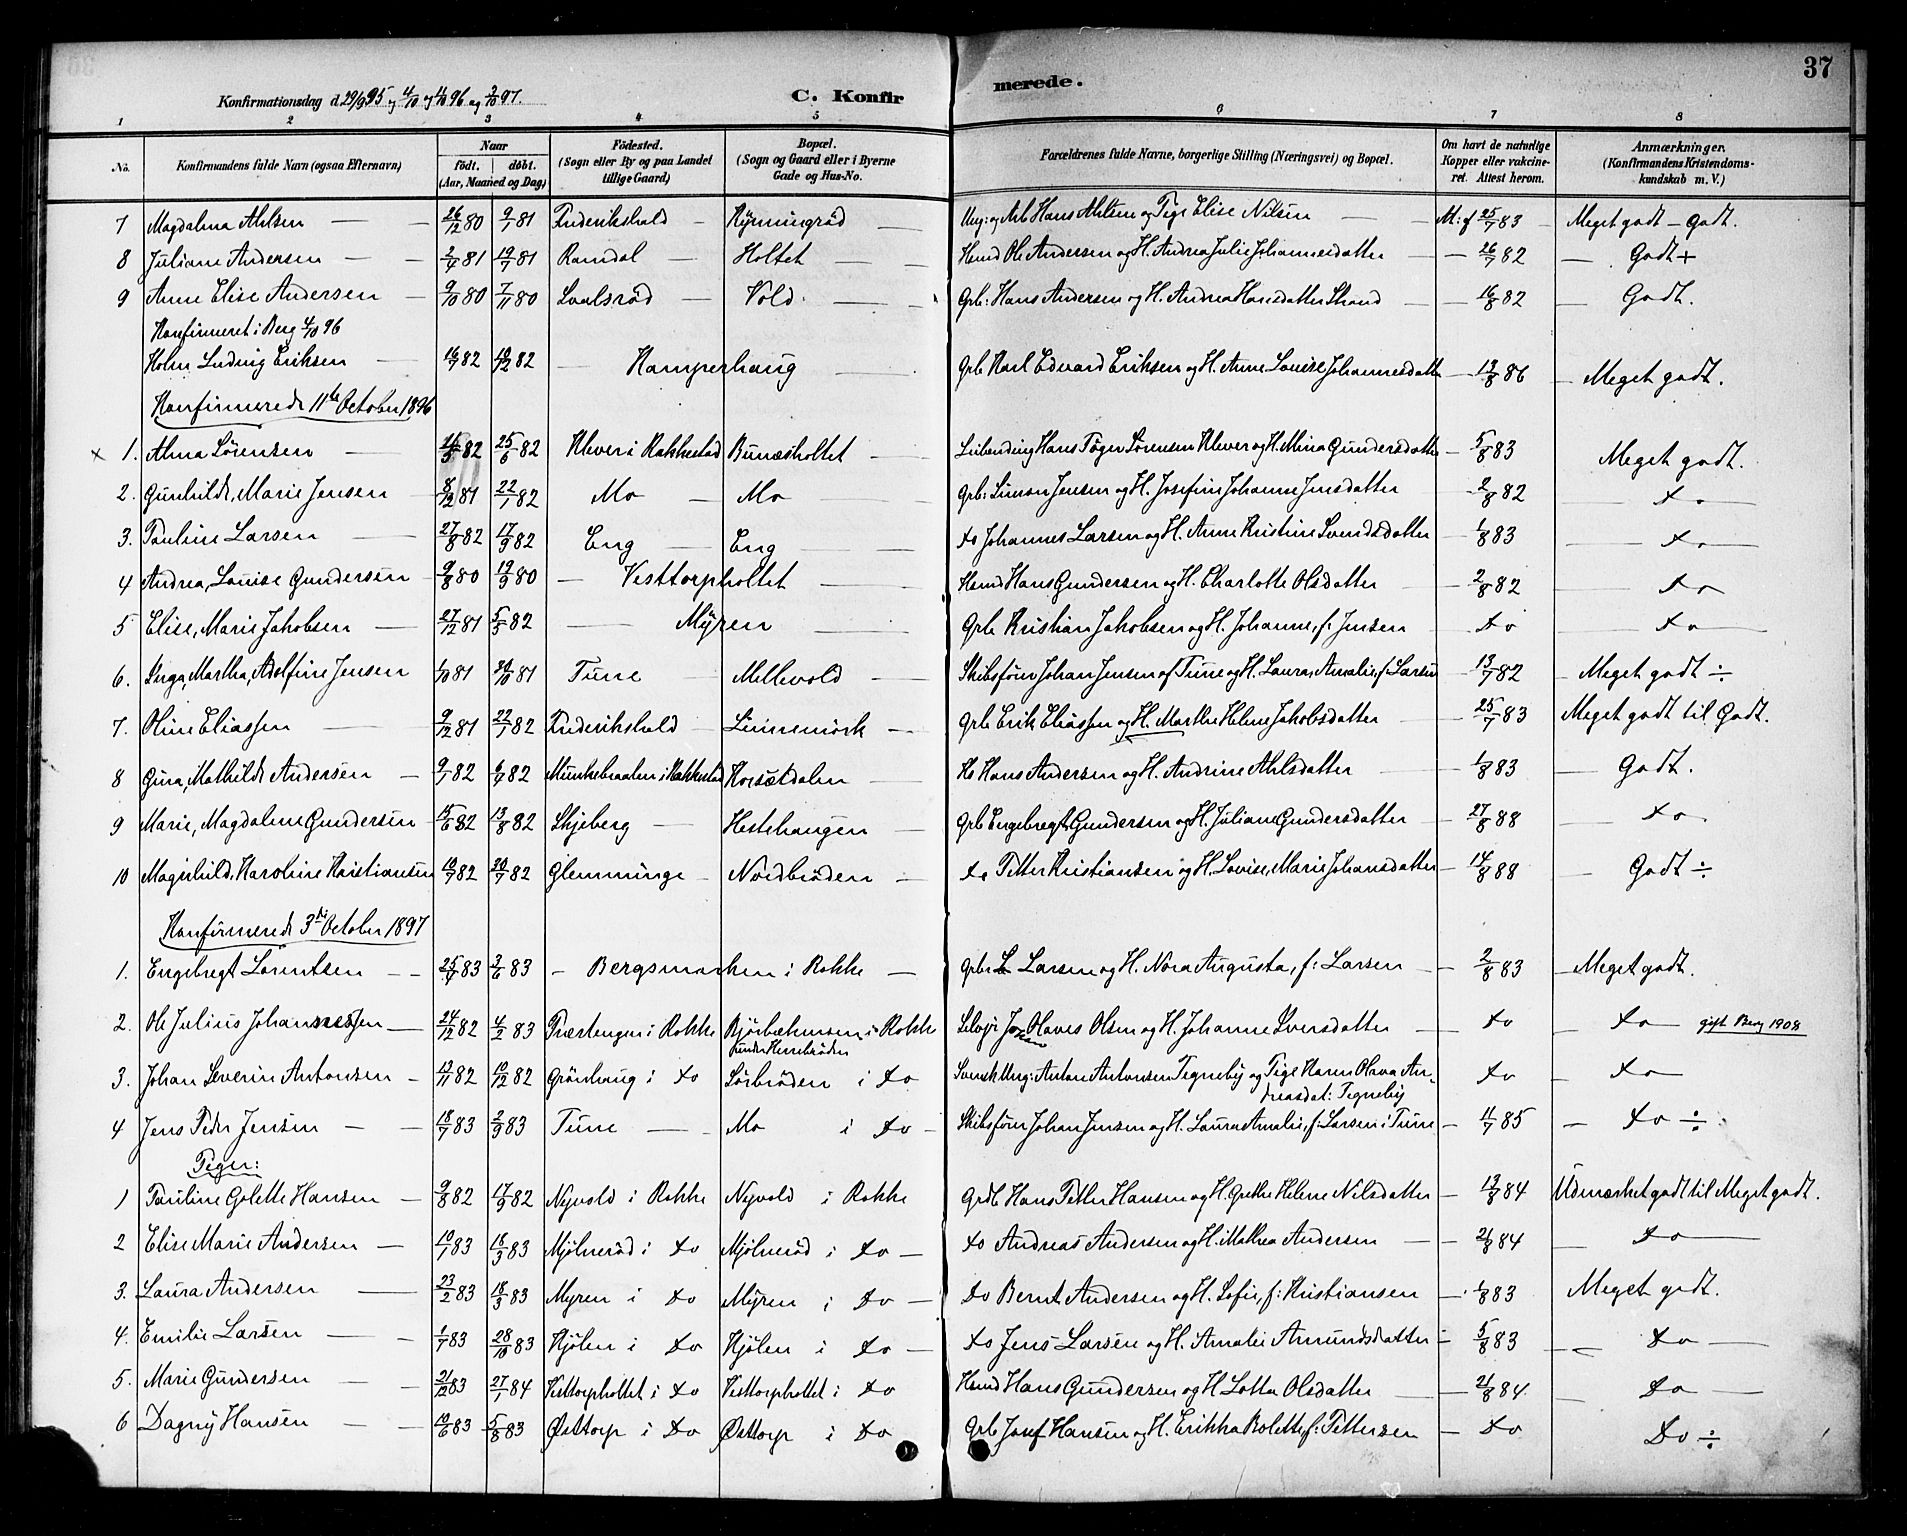 37
Konfirmationsdag d. 29/9 95 og 4/10 og 11/10 96 og 3/10 97.
C. Konfirmerede.
1 2 3 4 5 6 7 8
No. Konfirmandens fulde Navn (ogsaa Efternavn) Naar født. døbt. (Aar, Maaned og Dag) Födested. (Sogn eller By og paa Landet tillige Gaard) Bopæl. (Sogn og Gaard eller i Byerne Gade og Hus-No. Forældrenes fulde Navne, borgerlige Stilling (Næringsvei) og Bopæl. Om havt de naturlige Kopper eller vakcineret. Attest herom. Anmærkninger. (Konfirmandens Kristendomskundskab m. V.)
7 Magdalena Ahlsen 26/12 80 9/1 81 Frederikshald Rynningröd Ung: og Arb Hans Ahlsen og Pige Elise Nilsen M: f 25/7 83 Meget godt - Godt.
8 Juliane Andersen 2/4 81 10/7 81 Ramdal Holtet Hsmd Ole Andersen og H. Andrea Julie Johannesdatter 26/7 82 Godt +
9 Anne Elise Andersen 9/10 80 7/11 80 Svalsröd Vold Grb: Hans Andersen og H. Andrea Hansdatter Strand 16/8 82 Godt.
Konfirmeret i Berg 4/10 96
Holm Ludvig Eriksen 16/7 82 10/12 82 Kamperhaug Grb Karl Edvard Eriksen og H. Anne Louise Johannesdatter 13/8 86 Meget godt.
Konfirmerede 11te October 1896
x 1. Alma Sörensen 25/6 82 Klever i Rakkestad Bunæsholtet Leilending Hans Töger Sörensen Klever og H. Mina Gundersdatter 5/8 83 Meget godt.
2. Gunhilde, Marie Jensen 8/12 81 22/1 82 Mo Mo Grb: Simon Jensen og H. Josefine Johanne Jensdatter 2/8 82 do
3. Pauline Larsen 27/8 82 17/9 82 Eng Eng do Johannes Larsen og H. Anne Kristine Svendsdatter 1/8 83 do
4 Andrea, Louise Gundersen 9/8 80 19/9 80 Vesttorpholtet Hsmd Hans Gundersen og H. Charlotte Olsdatter 2/8 82 do
5 Elise, Marie Jakobsen 27/12 81 5/3 82 Myren Grb Kristian Jakobsen og H. Johanne, f: Jensen do do
6. Inga, Martha, Adolfine Jensen 1/10 81 30/10 81 Tune Mellevold Skibsförer Johan Jensen af Tune og H. Laura, Amalie, f: Larsen 13/7 82 Meget godt ÷
7. Oline Eliassen 9/12 81 22/1 82 Frederikshald Linnemörk Grb Erik Eliassen og H. Marthe Helene Jakobsdatter 25/7 83 Meget godt til Godt.
8 Gina, Mathilde Andersen 9/1 82 6/7 82 Munkebraaten i Rakkestad Korsætdalen Hans Andersen og H. Andrine Ahlsdatter 1/8 83 Godt.
9 Marie, Magdalene Gundersen 15/6 82 13/8 82 Skjeberg Hestehaugen Grb Engebregt Gundersen og H. Juliane Gundersdatter 27/8 88 do
10 Magnhild, Karoline Kristiansen 10/7 82 30/7 82 Glemminge Nordbröden do Petter Kristiansen og H. Lovise, Marie Johansdatter 14/8 88 Godt ÷
Konfirmerede 3die October 1897
1. Engebregt Lorentsen 25/4 83 3/6 83 Bergsmarken i Rokke Grbr L Larsen og H. Nora Augusta, f: Larsen 2/8 83 Meget godt.
2. Ole Julius Johannessen 24/12 82 4/2 83 Præstengen i Rokke Bjórbækmosen i Rokke Selvejer Johan Olaves Olsen og H. Johanne Iversdatter do do gift Berg 1908
under Herrebröden
3. Johan Severin Antonsen 13/11 82 10/12 82 Grönhaug i do Sörbröden i do Svensk Ung: Anton Antonsen Tegneby og Pige Karen Olava An-
dreasdat: Tegneby do do
4 Jens Peder Jensen 18/7 83 2/9 83 Tune Mo i do Skibsförer Johan Jensen og H. Laura Amalie, f: Larsen i Tune 11/7 85 do ÷
Piger:
1 Pauline Golette Hansen 9/8 82 17/9 82 Nyvold i Rokke Nyvold i Rokke Grdb Hans Petter Hansen og H. Grethe Helene Nilsdatter 13/8 84 Udmærket godt til Meget godt.
2 Elise Marie Andersen 10/1 83 18/3 83 Mjölneröd i do Mjölneröd i do do Andreas Andersen og H. Mathea Andersen 21/8 84 do
3. Laura Andersen 23/2 83 18/3 83 Myren i do Myren i do do Bernt Andersen og H. Sofie, f: Kristiansen 1/8 83 Meget godt.
4. Emilie Larsen 1/7 83 28/10 83 Kjölen i do Kjölen i do do Jens Larsen og H. Amalie Amundsdatter 5/8 83 do
5. Marie Gundersen 21/12 83 27/1 84 Vesttorpholtet i do Vesttorpholtet i do Hsmd Hans Gundersen og H Lotta Olsdatter 21/8 84. do
6 Dagny Hansen 10/6 83 5/8 83 Østtorp i do Østtorp i do Grb Josef Hansen og H. Erikka Bolette f: Pettersen do do ÷